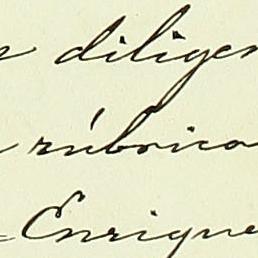 diligen
rúbrica
Enrique